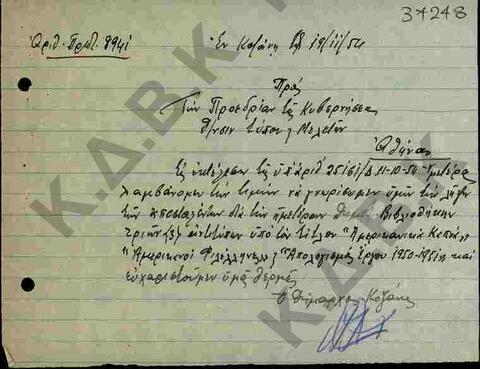 37248
Ἀριθ. Πρωτ. 8941
Ἐν Κοζάνῃ τῇ 19/11/54
Πρὸς
Τὴν Προεδρίαν τῆς Κυβερνήσεως
Δ/νσιν Τύπου & Μελετῶν
Ἀθήνας
Εἰς ἐκτέλεσιν τῆς ὑπ' ἀριθ. 25161/Δ 11-10-54 Ὑμετέρας
λαμβάνομεν τὴν τιμὴν νὰ γνωρίσωμεν ὑμῖν τὴν λῆψιν
τῶν ἀποσταλέντων διὰ τὴν ἡμετέραν Δημ. Βιβλιοθήκην
τριῶν (3) ἐντύπων ὑπὸ τὸν τίτλον "Ἀμερικανικὰ
"Ἀμερικανοὶ Φιλέλληνες" & "Ἀπολογισμὸς Ἔργου 1950-1951" καὶ
εὐχαριστοῦμεν ὑμᾶς θερμῶς
Ὁ Δήμαρχος Κοζάνης
Κ.Δ.Β.Κ